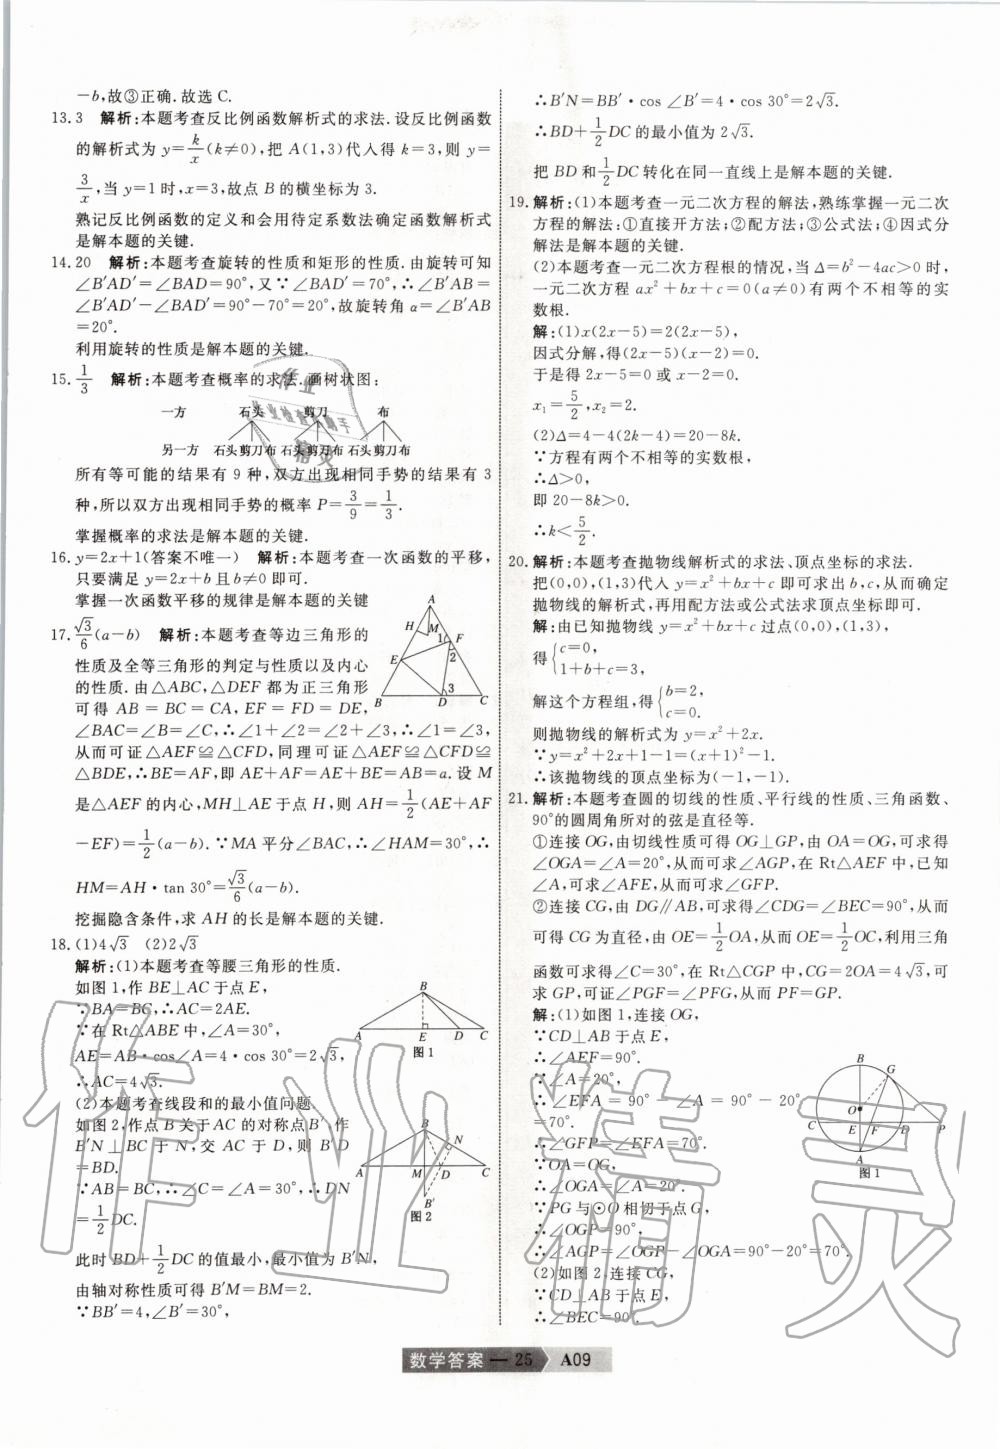 -b,故③正确.故选C.
13.3 解析:本题考查反比例函数解析式的求法.设反比例函数
的解析式为 y=k/x(k≠0),把 A(1,3)代入得 k=3,则 y=
3/x,当 y=1时,x=3,故点 B 的横坐标为 3.
熟记反比例函数的定义和会用待定系数法确定函数解析式
是解本题的关键.
14.20 解析:本题考查旋转的性质和矩形的性质.由旋转可知
∠B′AD′=∠BAD=90°,又∵∠BAD′=70°,∴∠B′AB=
∠B′AD′-∠BAD′=90°-70°=20°,故旋转角 α=∠B′AB
=20°.
利用旋转的性质是解本题的关键.
15.1/3 解析:本题考查概率的求法.画树状图:
一方 石头 剪刀 布
另一方 石头剪刀布 石头剪刀布 石头剪刀布
所有等可能的结果有 9 种,双方出现相同手势的结果有 3
种,所以双方出现相同手势的概率 P=3/9=1/3.
掌握概率的求法是解本题的关键.
16.y=2x+1(答案不唯一) 解析:本题考查一次函数的平移,
只要满足 y=2x+b 且 b≠0 即可.
掌握一次函数平移的规律是解本题的关键
17.√3/6(a-b) 解析:本题考查等边三角形的
性质及全等三角形的判定与性质以及内心
的性质.由△ABC,△DEF 都为正三角形
可得 AB = BC = CA, EF = FD = DE,
∠BAC=∠B=∠C,∴∠1+∠2=∠2+∠3,∴∠1=∠3,
从而可证△AEF≌△CFD,同理可证△AEF≌△CFD≌
△BDE,∴BE=AF,即 AE+AF=AE+BE=AB=a.设 M
是△AEF 的内心,MH⊥AE 于点 H,则 AH=1/2(AE+AF
-EF)=1/2(a-b).∵MA 平分∠BAC,∴∠HAM=30°,∴
HM=AH·tan 30°=√3/6(a-b).
挖掘隐含条件,求 AH 的长是解本题的关键.
A
H M 1 F
E 2
3
B D C
18.(1)4√3 (2)2√3
解析:(1)本题考查等腰三角形的性质.
如图 1,作 BE⊥AC 于点 E,
∵BA=BC,∴AC=2AE.
∵在 Rt△ABE 中,∠A=30°,
AE=AB·cos∠A=4·cos 30°=2√3,
∴AC=4√3.
B
A E D C
图1
(2)本题考查线段和的最小值问题.
如图 2,作点 B 关于 AC 的对称点 B′,作
B′N⊥BC 于 N,交 AC 于 D,则 B′D
=BD.
∵AB=BC,∴∠C=∠A=30°,∴DN
=1/2DC.
B
N
A M D C
B′
图2
此时 BD+1/2DC 的值最小,最小值为 B′N,
由轴对称性质可得 B′M=BM=2.
∵BB′=4,∠B′=30°,
∴B′N=BB′·cos∠B′=4·cos 30°=2√3.
∴BD+1/2DC 的最小值为 2√3.
把 BD 和1/2DC 转化在同一直线上是解本题的关键.
19.解析:(1)本题考查一元二次方程的解法,熟练掌握一元二次
方程的解法:①直接开方法;②配方法;③公式法;④因式分
解法是解本题的关键.
(2)本题考查一元二次方程根的情况,当 Δ=b²-4ac>0 时,
一元二次方程 ax²+bx+c=0(a≠0)有两个不相等的实数
根.
解:(1)x(2x-5)=2(2x-5),
因式分解,得(2x-5)(x-2)=0.
于是得 2x-5=0 或 x-2=0.
x₁=5/2,x₂=2.
(2)Δ=4-4(2k-4)=20-8k.
∵方程有两个不相等的实数根,
∴Δ>0,
即 20-8k>0.
∴k<5/2.
20.解析:本题考查抛物线解析式的求法、顶点坐标的求法.
把(0,0),(1,3)代入 y=x²+bx+c 即可求出 b,c,从而确定
抛物线的解析式,再用配方法或公式法求顶点坐标即可.
解:由已知抛物线 y=x²+bx+c 过点(0,0),(1,3),
得{c=0,
1+b+c=3,
解这个方程组,得{b=2,
c=0.
则抛物线的解析式为 y=x²+2x.
∵y=x²+2x+1-1=(x+1)²-1.
∴该抛物线的顶点坐标为(-1,-1).
21.解析:本题考查圆的切线的性质、平行线的性质、三角函数、
90°的圆周角所对的弦是直径等.
①连接 OG,由切线性质可得 OG⊥GP,由 OA=OG,可求得
∠OGA=∠A=20°,从而可求∠AGP,在 Rt△AEF 中,已知
∠A,可求∠AFE,从而可求∠GFP.
②连接 CG,由 DG∥AB,可求得∠CDG=∠BEC=90°,从而
可得 CG 为直径,由 OE=1/2OA,从而 OE=1/2OC,利用三角
函数可求得∠C=30°,在 Rt△CGP 中,CG=2OA=4√3,可
求 GP,可证∠PGF=∠PFG,从而 PF=GP.
解:(1)如图 1,连接 OG,
∵CD⊥AB 于点 E,
∴∠AEF=90°.
∵∠A=20°,
∴∠EFA = 90° - ∠A = 90° - 20°
=70°.
∴∠GFP=∠EFA=70°.
∵OA=OG,
∴∠OGA=∠A=20°.
∵PG 与⊙O 相切于点 G,
∴∠OGP=90°.
∴∠AGP=∠OGP-∠OGA=90°-20°=70°.
B
G
O
C E F D P
A
图1
(2)如图 2,连接 CG,
∵CD⊥AB 于点 E,
∴∠BEC=90°.
数学答案 — 25 A09
作业
作业检查小助手
精灵
作业精灵